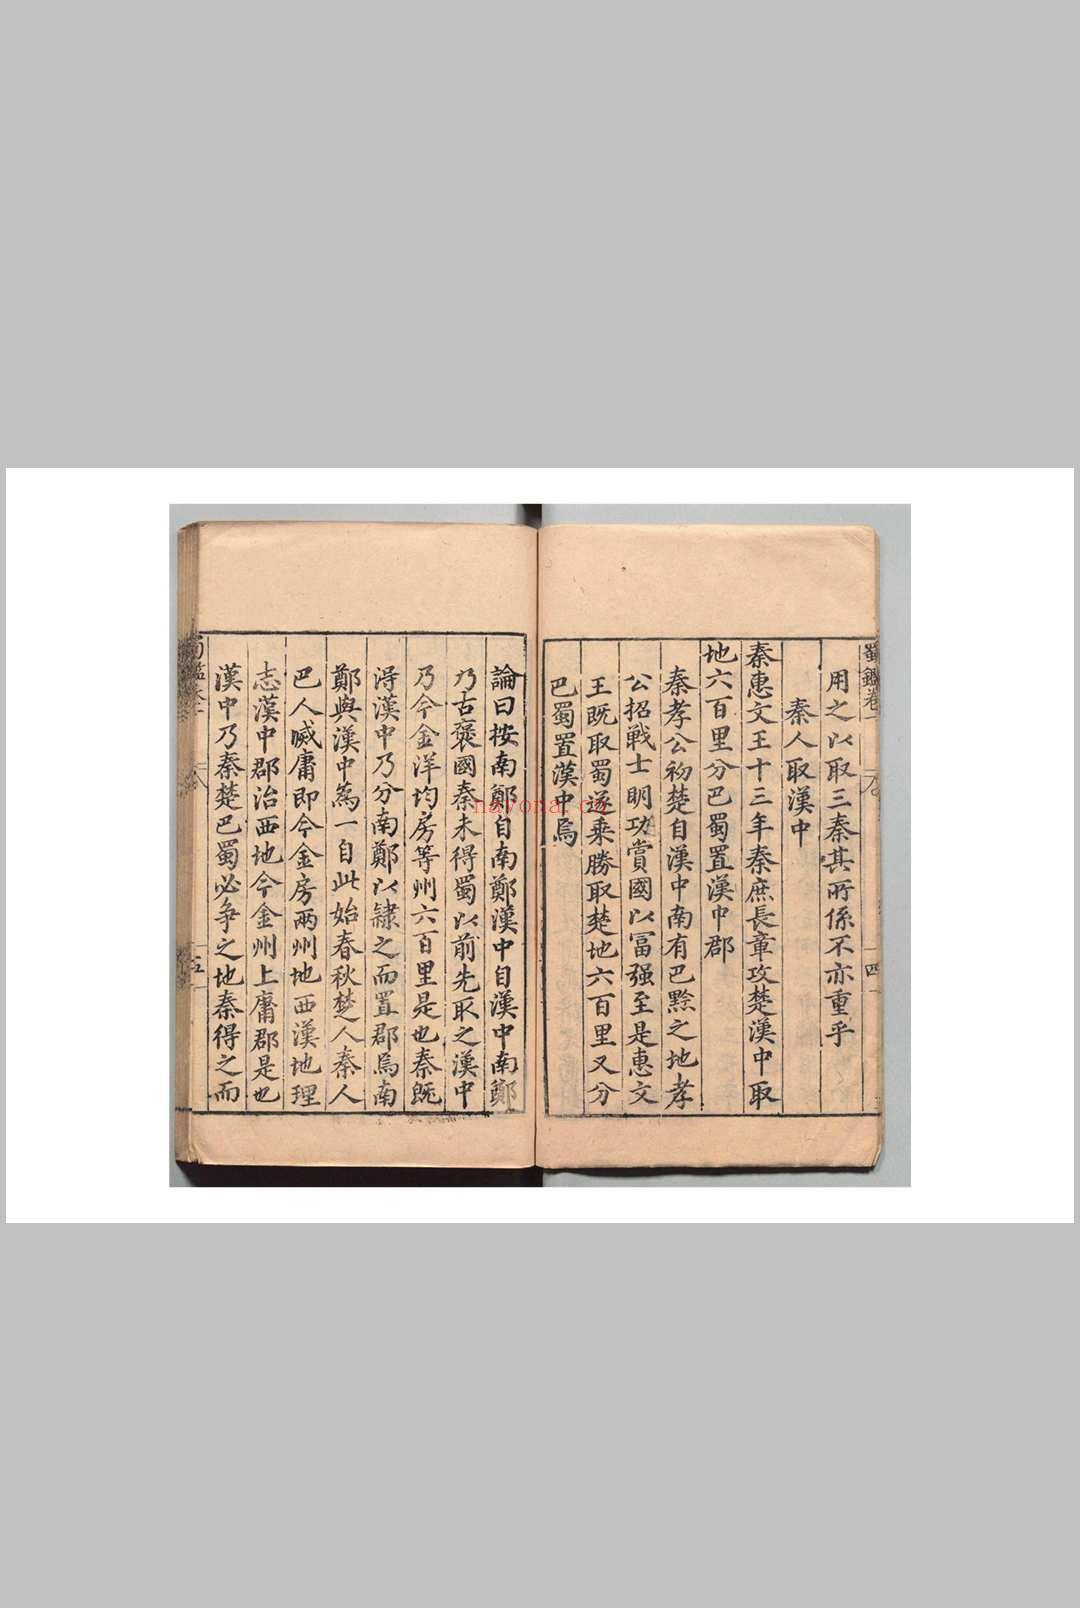 蜀鑑卷一
四
用之以取三秦其所係不亦重乎
秦人取漢中
秦惠文王十三年秦庶長章攻楚漢中取
地六百里分巴蜀置漢中郡
秦孝公初楚自漢中南有巴黔之地孝
公招戰士明功賞國以富强至是惠文
王既取蜀遂乘勝取楚地六百里又分
巴蜀置漢中焉
論曰按南鄭自南鄭漢中自漢中南鄭
乃古褒國秦未得蜀以前先取之漢中
乃今金洋均房等州六百里是也秦既
得漢中乃分南鄭以隸之而置郡焉南
鄭與漢中為一自此始春秋楚人秦人
巴人滅庸即今金房兩州地西漢地理
志漢中郡治西地今金州上庸郡是也
漢中乃秦楚巴蜀必争之地秦得之而
五
nayona.cn